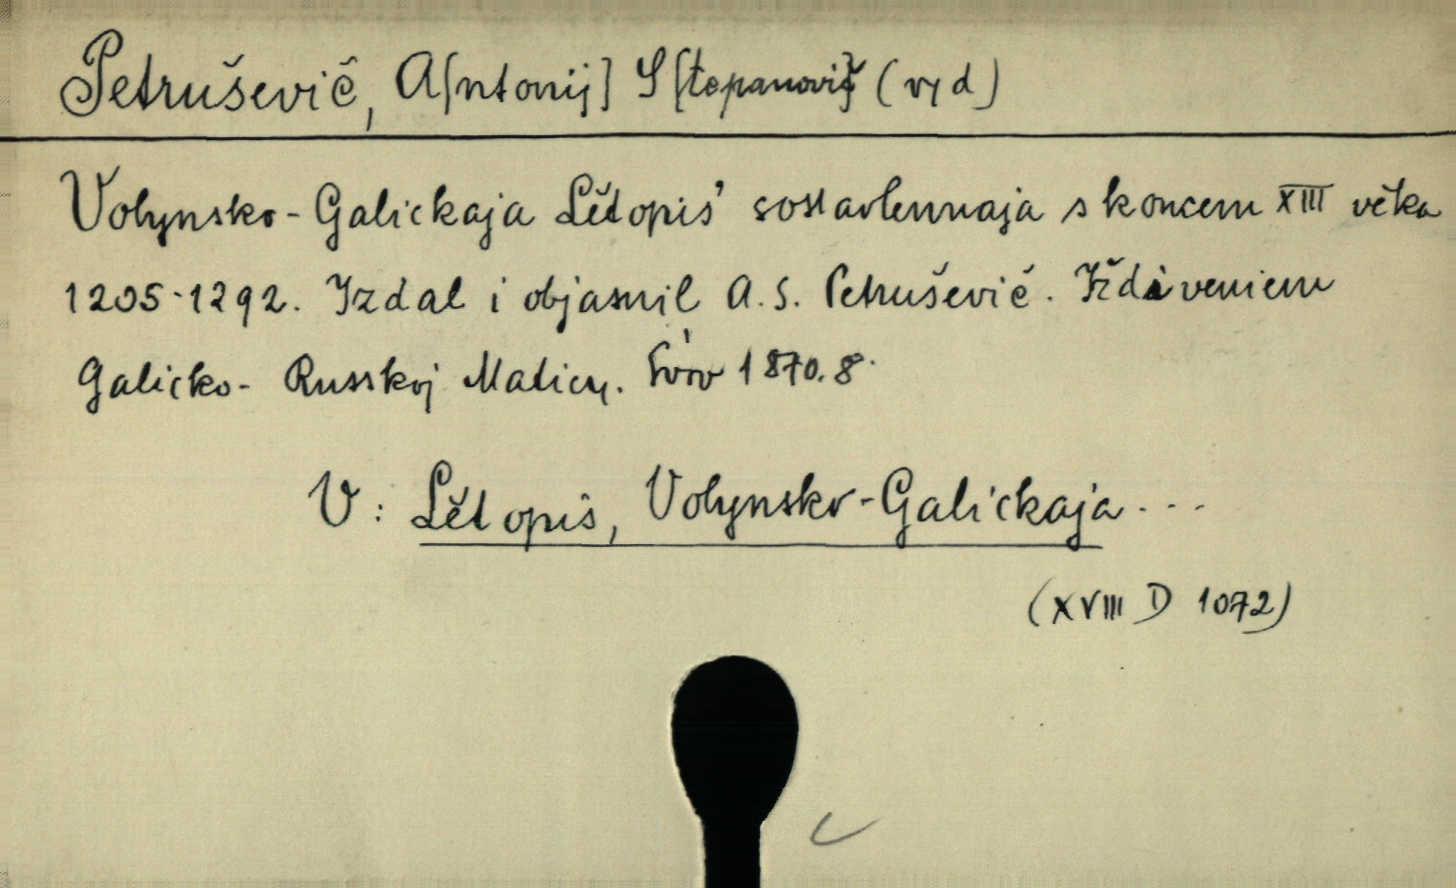 Petruševič, A[ntonij] S[tepanovič] (vyd)
Volynsko-Galickaja Lětopis' sostavlennaja s koncem XIII věka
1205-1292. Izdal i objasnil A. S. Petruševič. Iždiveniem
Galicko-Russkoj Maticy. Lvov 1870. 8.
V: Lětopis, Volynsko-Galickaja...
(XVIII D 1072)